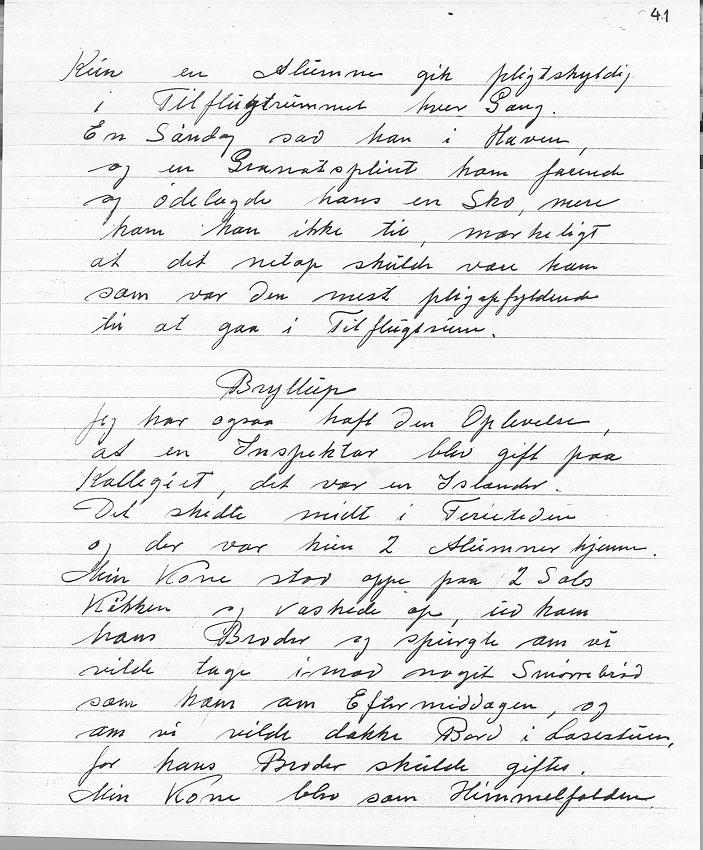 41
Kun en Alumne gik pligtskyldig
i Tilflugtrummet hver Gang.
En Søndag sad han i Haven,
og en Granatsplint kom farende
og ødelagde hans en Sko, mere
kom han ikke til, mærkeligt
at det netop skulde være ham
som var den mest pligopfyldende
til at gaa i Tilflugtsrum.
Bryllup
Jeg har ogsaa haft den Oplevelse,
at en Inspektør blev gift paa
Kollegiet, det var en Islænder.
Det skedte midt i Ferietiden
og der var kun 2 Alumner hjemme.
Min Kone stod oppe paa 2 Sals
Køkken og vaskede op, ind kom
hans Broder og spurgte om vi
vilde tage imod noget Smørrebrød
som kom om Eftermiddagen, og
om vi vilde dække Bord i Læsestuen,
for hans Broder skulde giftes.
Min Kone blev som Himmelfalden.